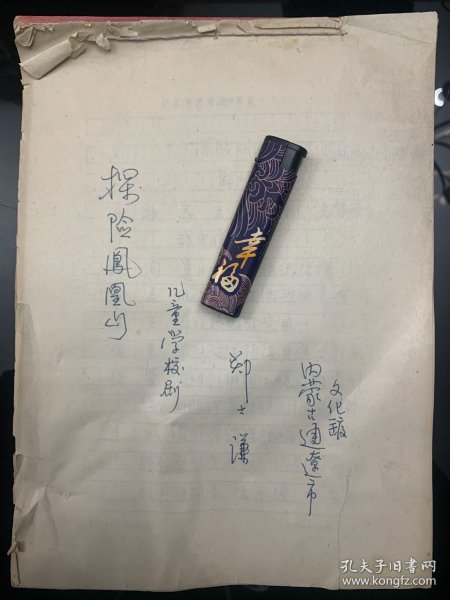 探险鳳凰山
儿童学校剧
郑士谦
内蒙古通遼市
文化馆
幸福
孔夫子旧书网
www.kongfz.com